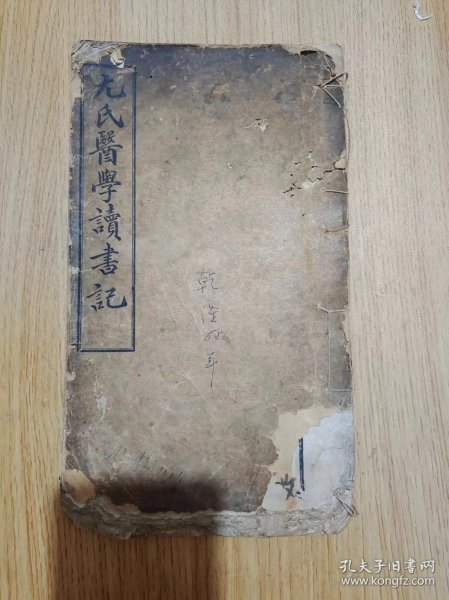 尤氏醫學讀書記
乾隆
年
孔夫子旧书网
www.kongfz.com